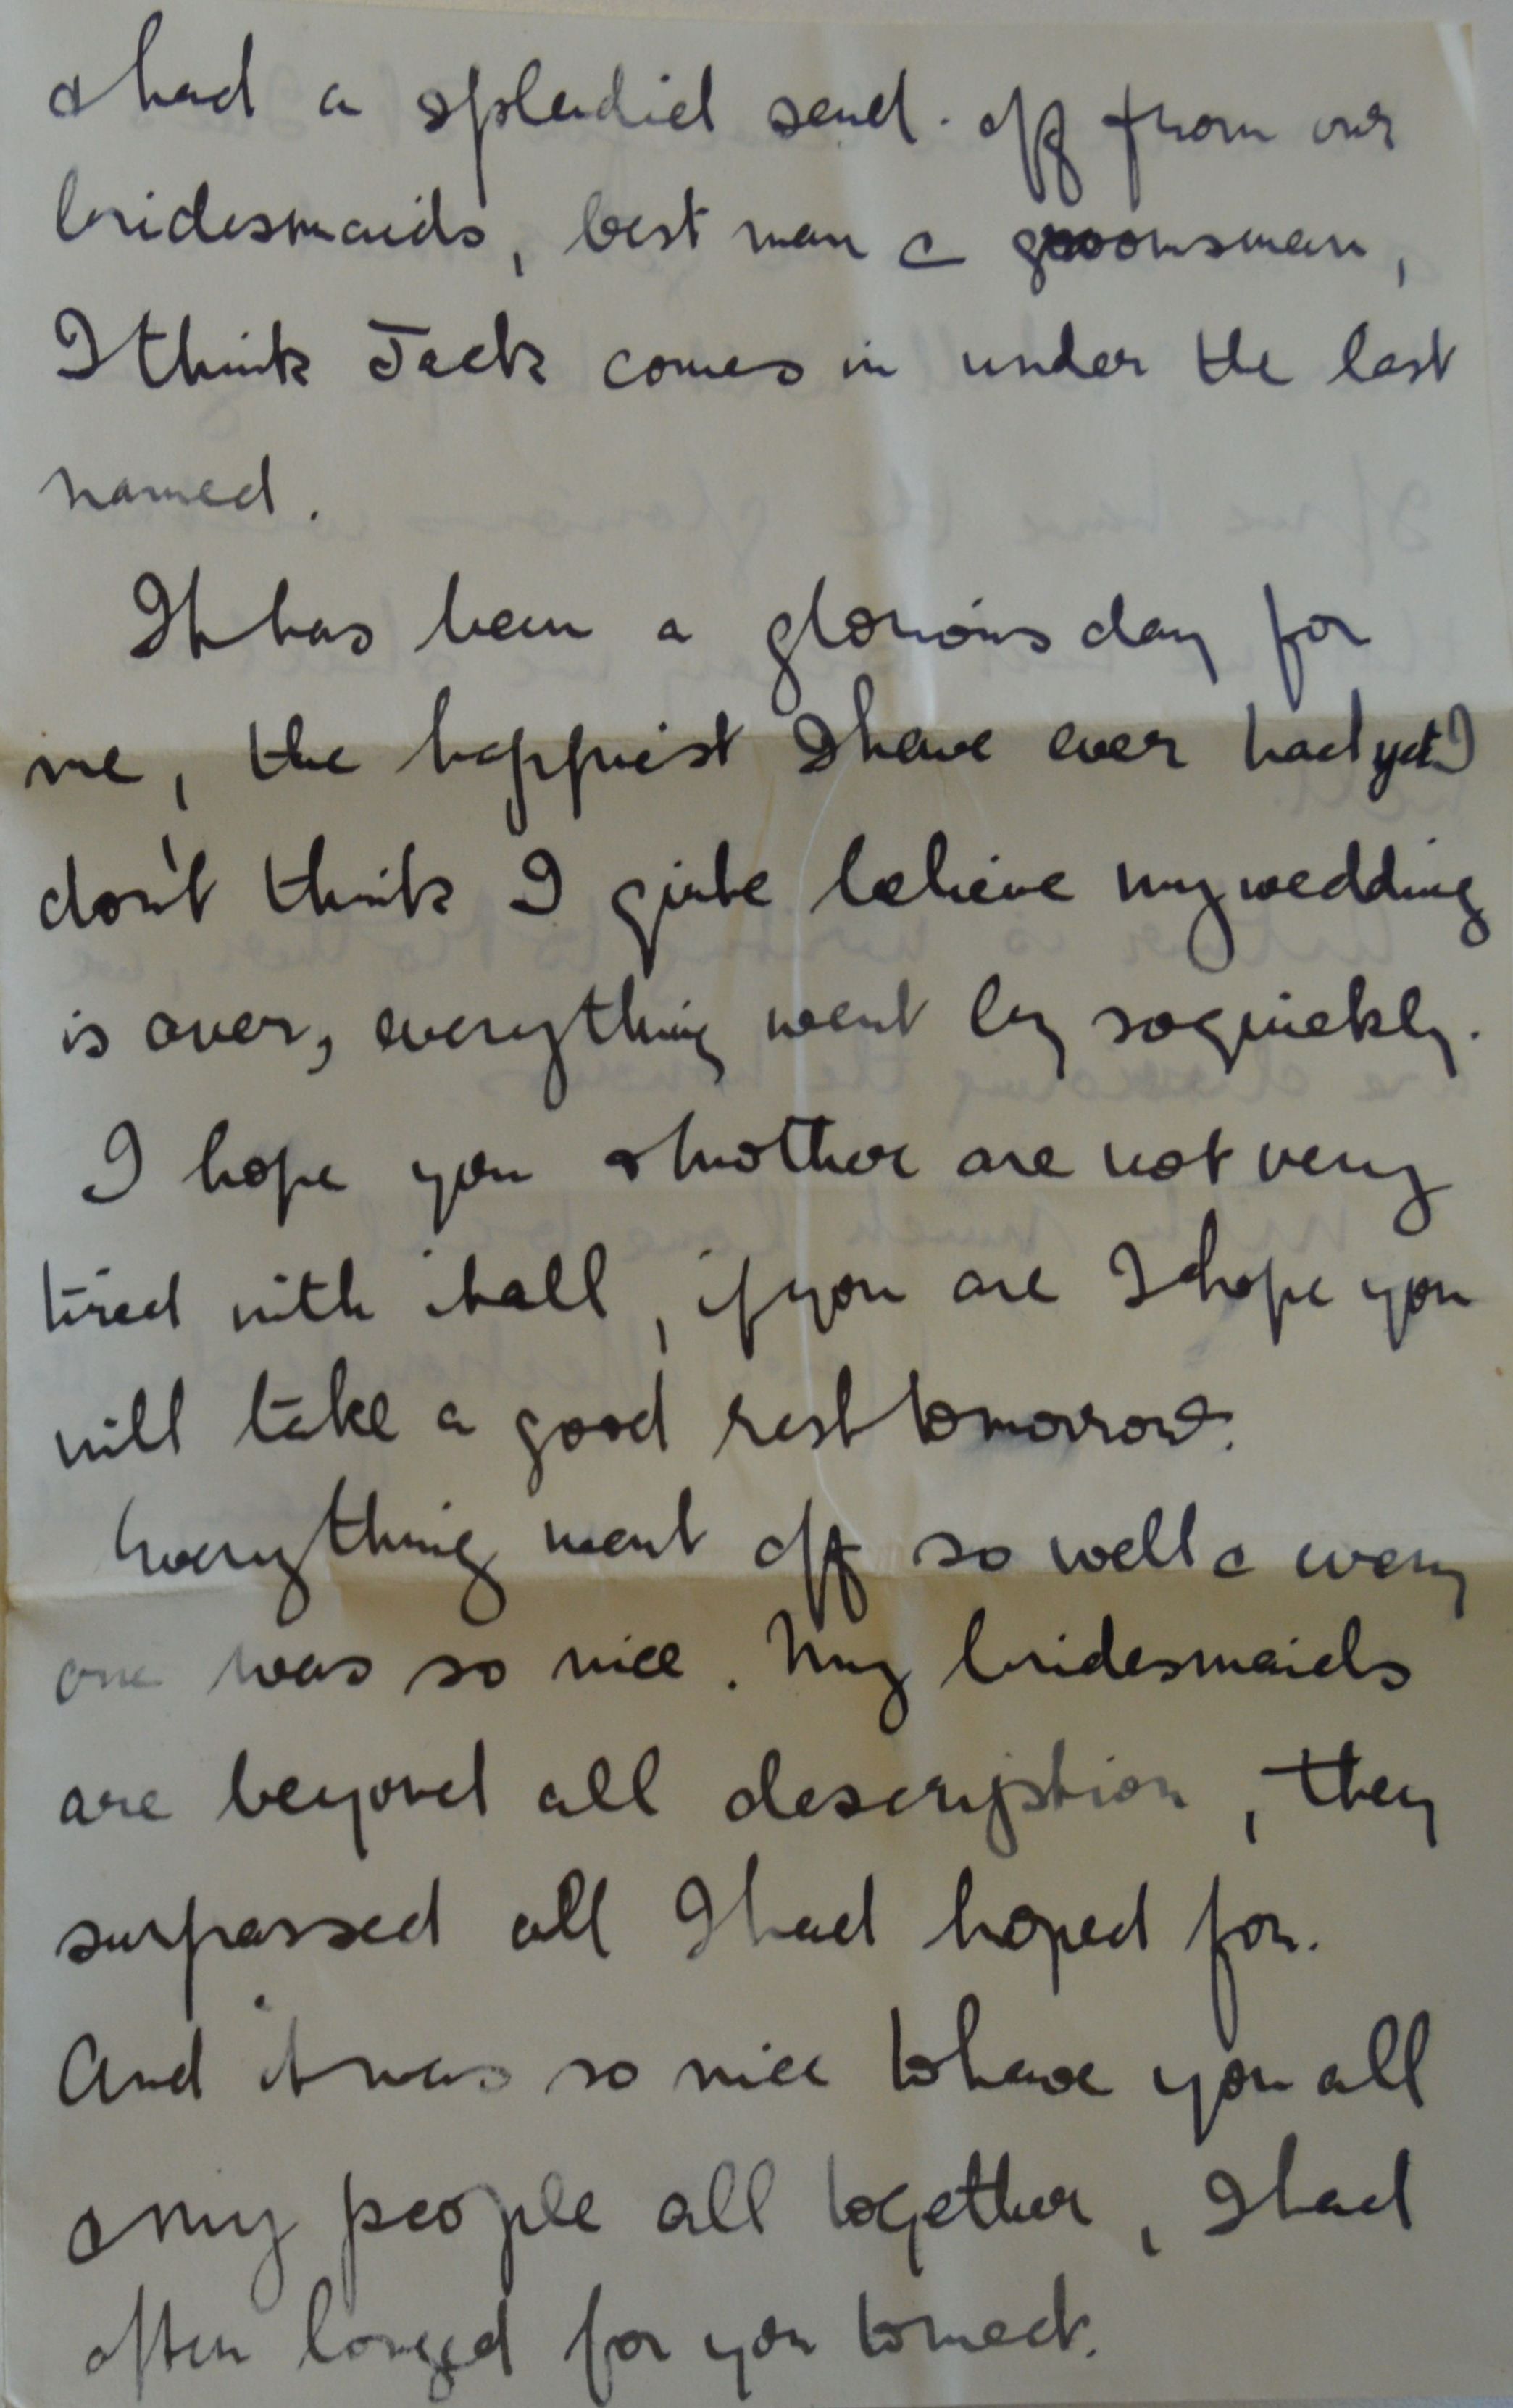 & had a splendid send-off from our
bridesmaids, best man & groomsman,
I think Jack comes in under the last
named.
It has been a glorious day for
me, the happiest I have ever had yet. I
don't think I quite believe my wedding
is over, everything went by so quickly.
I hope you & Mother are not very
tired with it all, if you are I hope you
will take a good rest tomorrow.
Everything went off so well & every
one was so nice. My bridesmaids
are beyond all description, they
surpassed all I had hoped for.
And it was so nice to have you all
& my people all together, I had
often longed for you to meet.